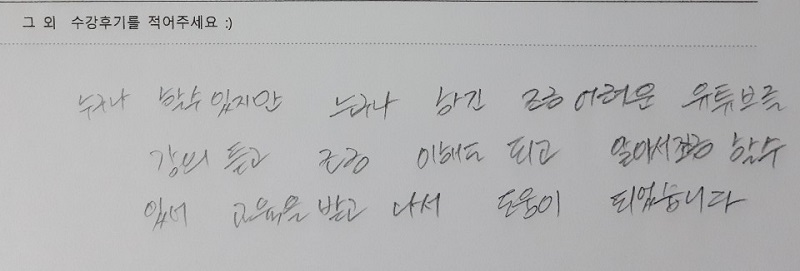 그 외 수강후기를 적어주세요 :)
누구나 할수 있지만 누구나 하긴 조금 어려운 유튜브를
강의 듣고 조금 이해도 되고 알아서 할수
있어 교육을 받고 나서 도움이 되었습니다